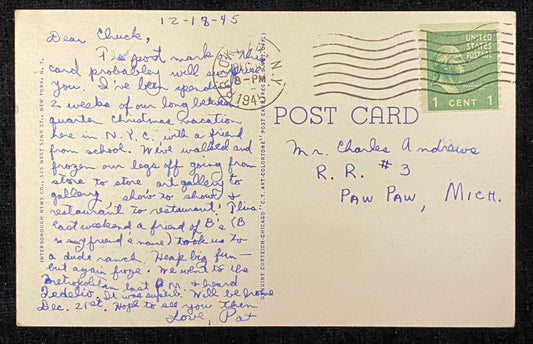 12-18-45
Dear Chuck,
The post mark on this
card probabley will surprise
you. I've been spending
2 weeks of our long between
quarter Christmas vacation
here in N.Y.C. with a friend
from school. We've walked and
frozen our legs off going from
store to store art gallery to
gallery, show to show &
restaurant to restaurant! This
last weekend a friend of B's (B
is my friend's name) took us to
a dude ranch. Heap big fun—
but again froze. We went to the
Metropolitan last P.M. & heard
Fedelio. It was superb. Will be home
Dec. 21st. Hope to see you then
Love, Pat
INTERBOROUGH NEWS CO., 525 WEST 52ND ST., NEW YORK, N. Y.
GENUINE CURTEICH-CHICAGO "C. T. ART-COLORTONE" POST CARD (REG. U. S. PAT. OFF.)
N.Y.
8-PM
1945
UNITED
STATES
POSTAGE
1 CENT 1
POST CARD
Mr. Charles Andrews
R. R. #3
Paw Paw, Mich.